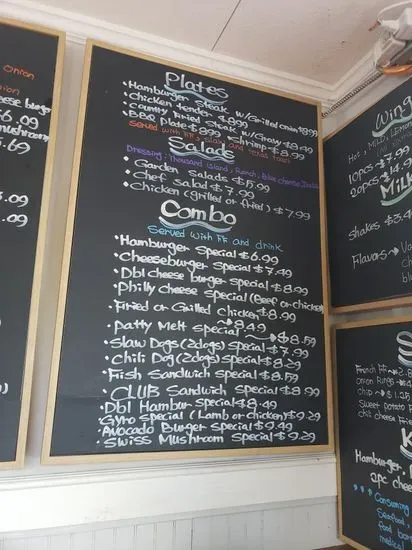 Onion
cheese burger
mushroom
5.69
Plates
• Hamburger Steak w/Grilled onion $8.99
• chicken tender $8.99
• country fried Steak w/Gravy $8.49
• BBQ Plate $8.99 Shrimp $8.99
Served with FF, Salad and Texas Toast
Salads
Dressing: Thousand island, Ranch, Blue cheese, Italian
• Garden Salads $5.99
• Chef Salad $7.99
• Chicken (grilled or fried) $7.99
Combo
Served with FF and drink
• Hamburger special $6.99
• Cheeseburger special $7.49
• Dbl cheese burger special $8.99
• Philly cheese special (Beef or chicken)
• Fried or Grilled Chicken $8.99
• Patty Melt special → $8.49
→ $8.59
• Slaw Dogs (2dogs) special $7.99
• Chili Dog (2dogs) special $8.29
• Fish Sandwich special $8.59
• CLUB Sandwich special $8.99
• Dbl Hambur special $8.49
• Gyro special (Lamb or chicken) $9.29
• Avocado Burger special $9.49
• Swiss Mushroom special $9.29
Wing
Hot, Mild, Lemon
10pcs → $7.99
20pcs → $14.
Milk
shakes $3.4
Flavors → Va
S
French FF → 2.8
Onion Rings →
chip → $1.25
Sweet potato
chili cheese fries
K
Hamburger,
2pc chee
Consuming
Seafood
food bo
medical